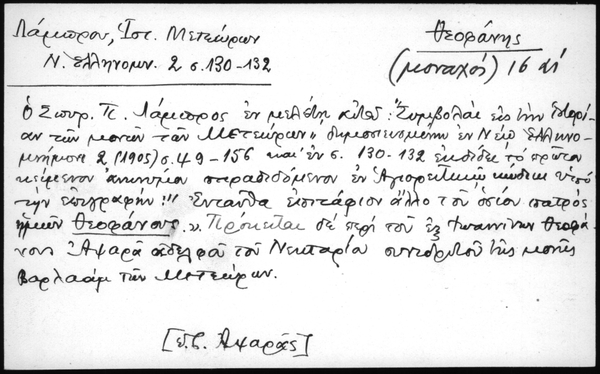 Λάμπρου, Ἱστ. Μετεώρων
Ν. Ἑλληνομν. 2 σ. 130-132
Θεοφάνης
(μοναχός) 16 αἰ
Ὁ Σπυρ. Π. Λάμπρος ἐν μελέτῃ : "Συμβολαὶ εἰς τὴν ἱστορί-
αν τῶν μονῶν τῶν Μετεώρων" δημοσιευομένῃ ἐν Νέῳ Ἑλληνο-
μνήμονι 2 (1905) σ. 49-156 καὶ ἐν σ. 130-132 ἐκδίδει τὸ πρῶτον
κείμενον ἀνωνύμως παραδιδόμενον ἐν Ἁγιορειτικῷ κώδικι ὑπὸ
τὴν ἐπιγραφήν "Ἐνταῦθα ἐπιτάφιον ἄλλο τοῦ ὁσίου πατρὸς
ἡμῶν Θεοφάνους". Πρόκειται δὲ περὶ τοῦ ἐξ Ἰωαννίνων Θεοφά-
νους Ἀψαρᾶ ἀδελφοῦ τοῦ Νεκταρίου συνιδρυτοῦ τῆς μονῆς
Βαρλαὰμ τῶν Μετεώρων.
[ Ἀψαράς]